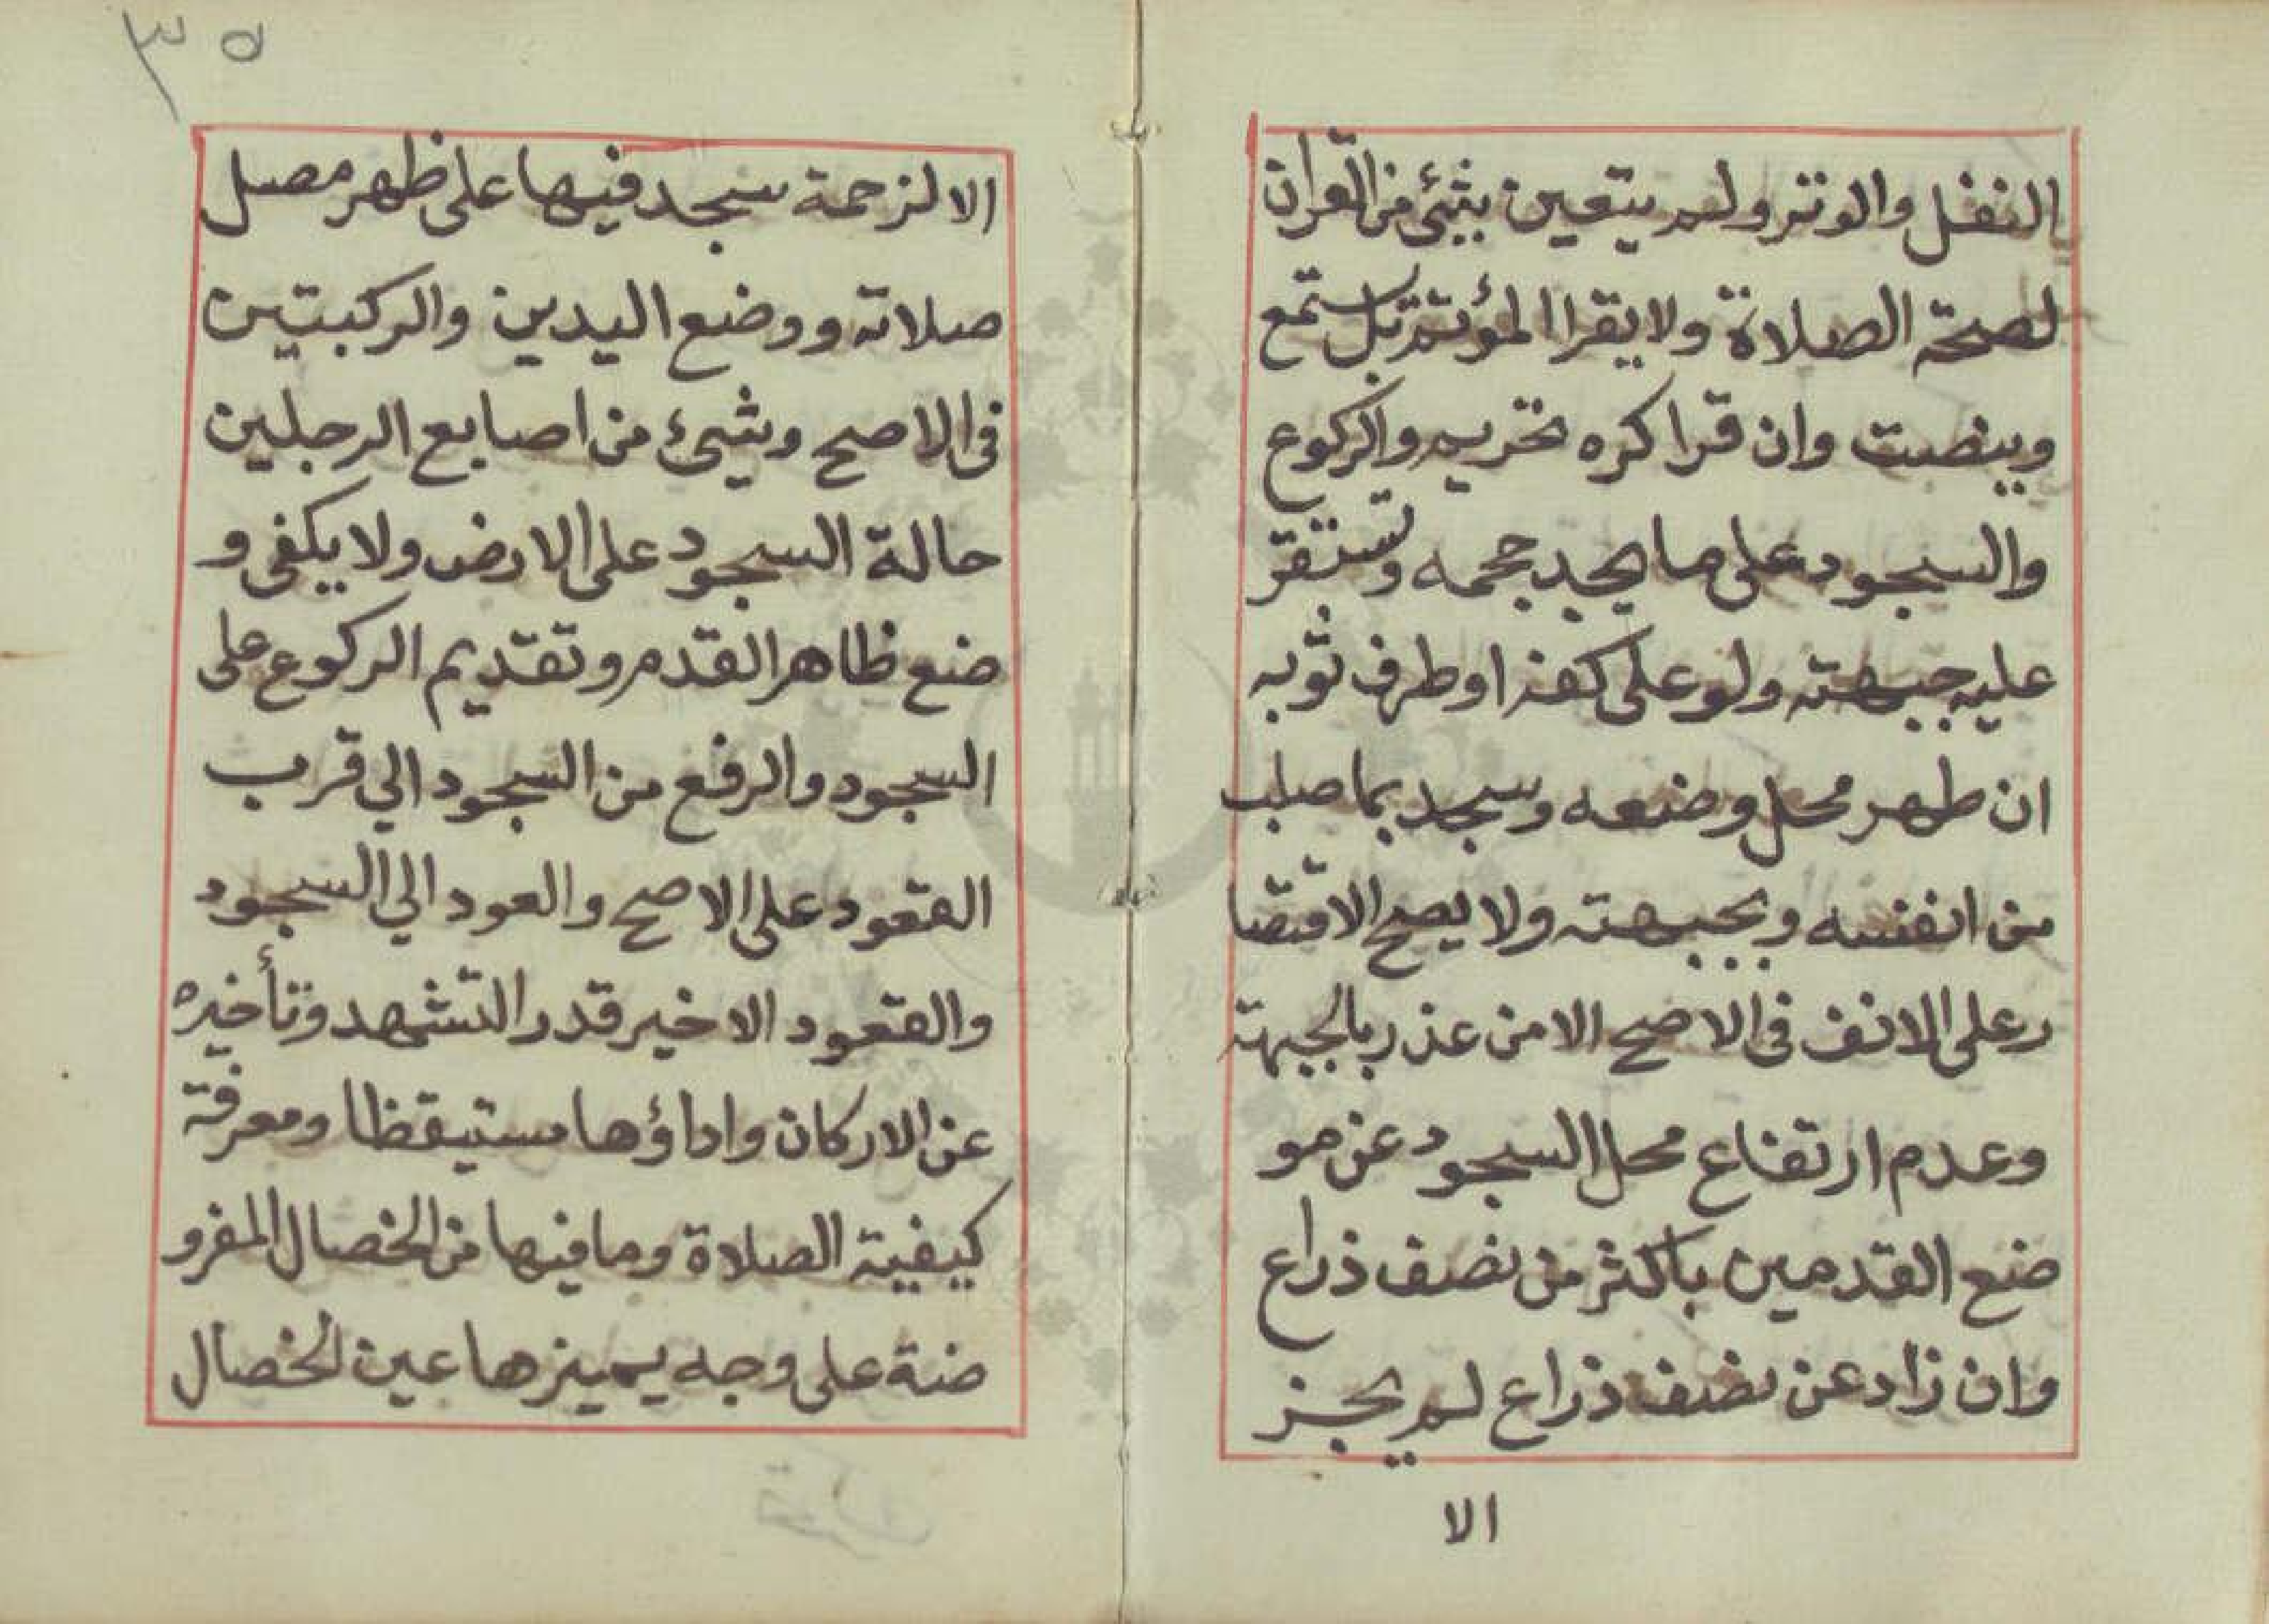 النفل والوتر ولم يتعين بشئ من القران
لصحة الصلاة ولا يقرا المؤتم بل يستمع
وينصت وان قرا كره تحريم والركوع
والسجود على ما يجد حجمه وتستقر
عليه جبهته ولو على كفه او طرف ثوبه
ان طهر محل وضعه وسجد بما صلب
من انفسه وبجبهته ولا يصح الاقتصا
ر على الانف فى الاصح الا من عذر بالجبهة
وعدم ارتفاع محل السجود عن مو
ضع القدمين باكثر من نصف ذراع
وان زاد عن نصف ذراع لم يجز
الا
٣٥
الا لزحمة سجد فيها على ظهر مصل
صلاته ووضع اليدين والركبتين
فى الاصح وشيئ من اصابع الرجلين
حالة السجود على الارض ولا يكفى و
ضع ظاهر القدم وتقديم الركوع على
السجود والرفع من السجود الي قرب
القعود على الاصح والعود الي السجود
والقعود الاخير قدر التشهد وتأخيره
عن الاركان واداؤها مستيقظا ومعرفة
كيفية الصلاة وما فيها من الخصال المفرو
ضة على وجه يميزها عين الخصال